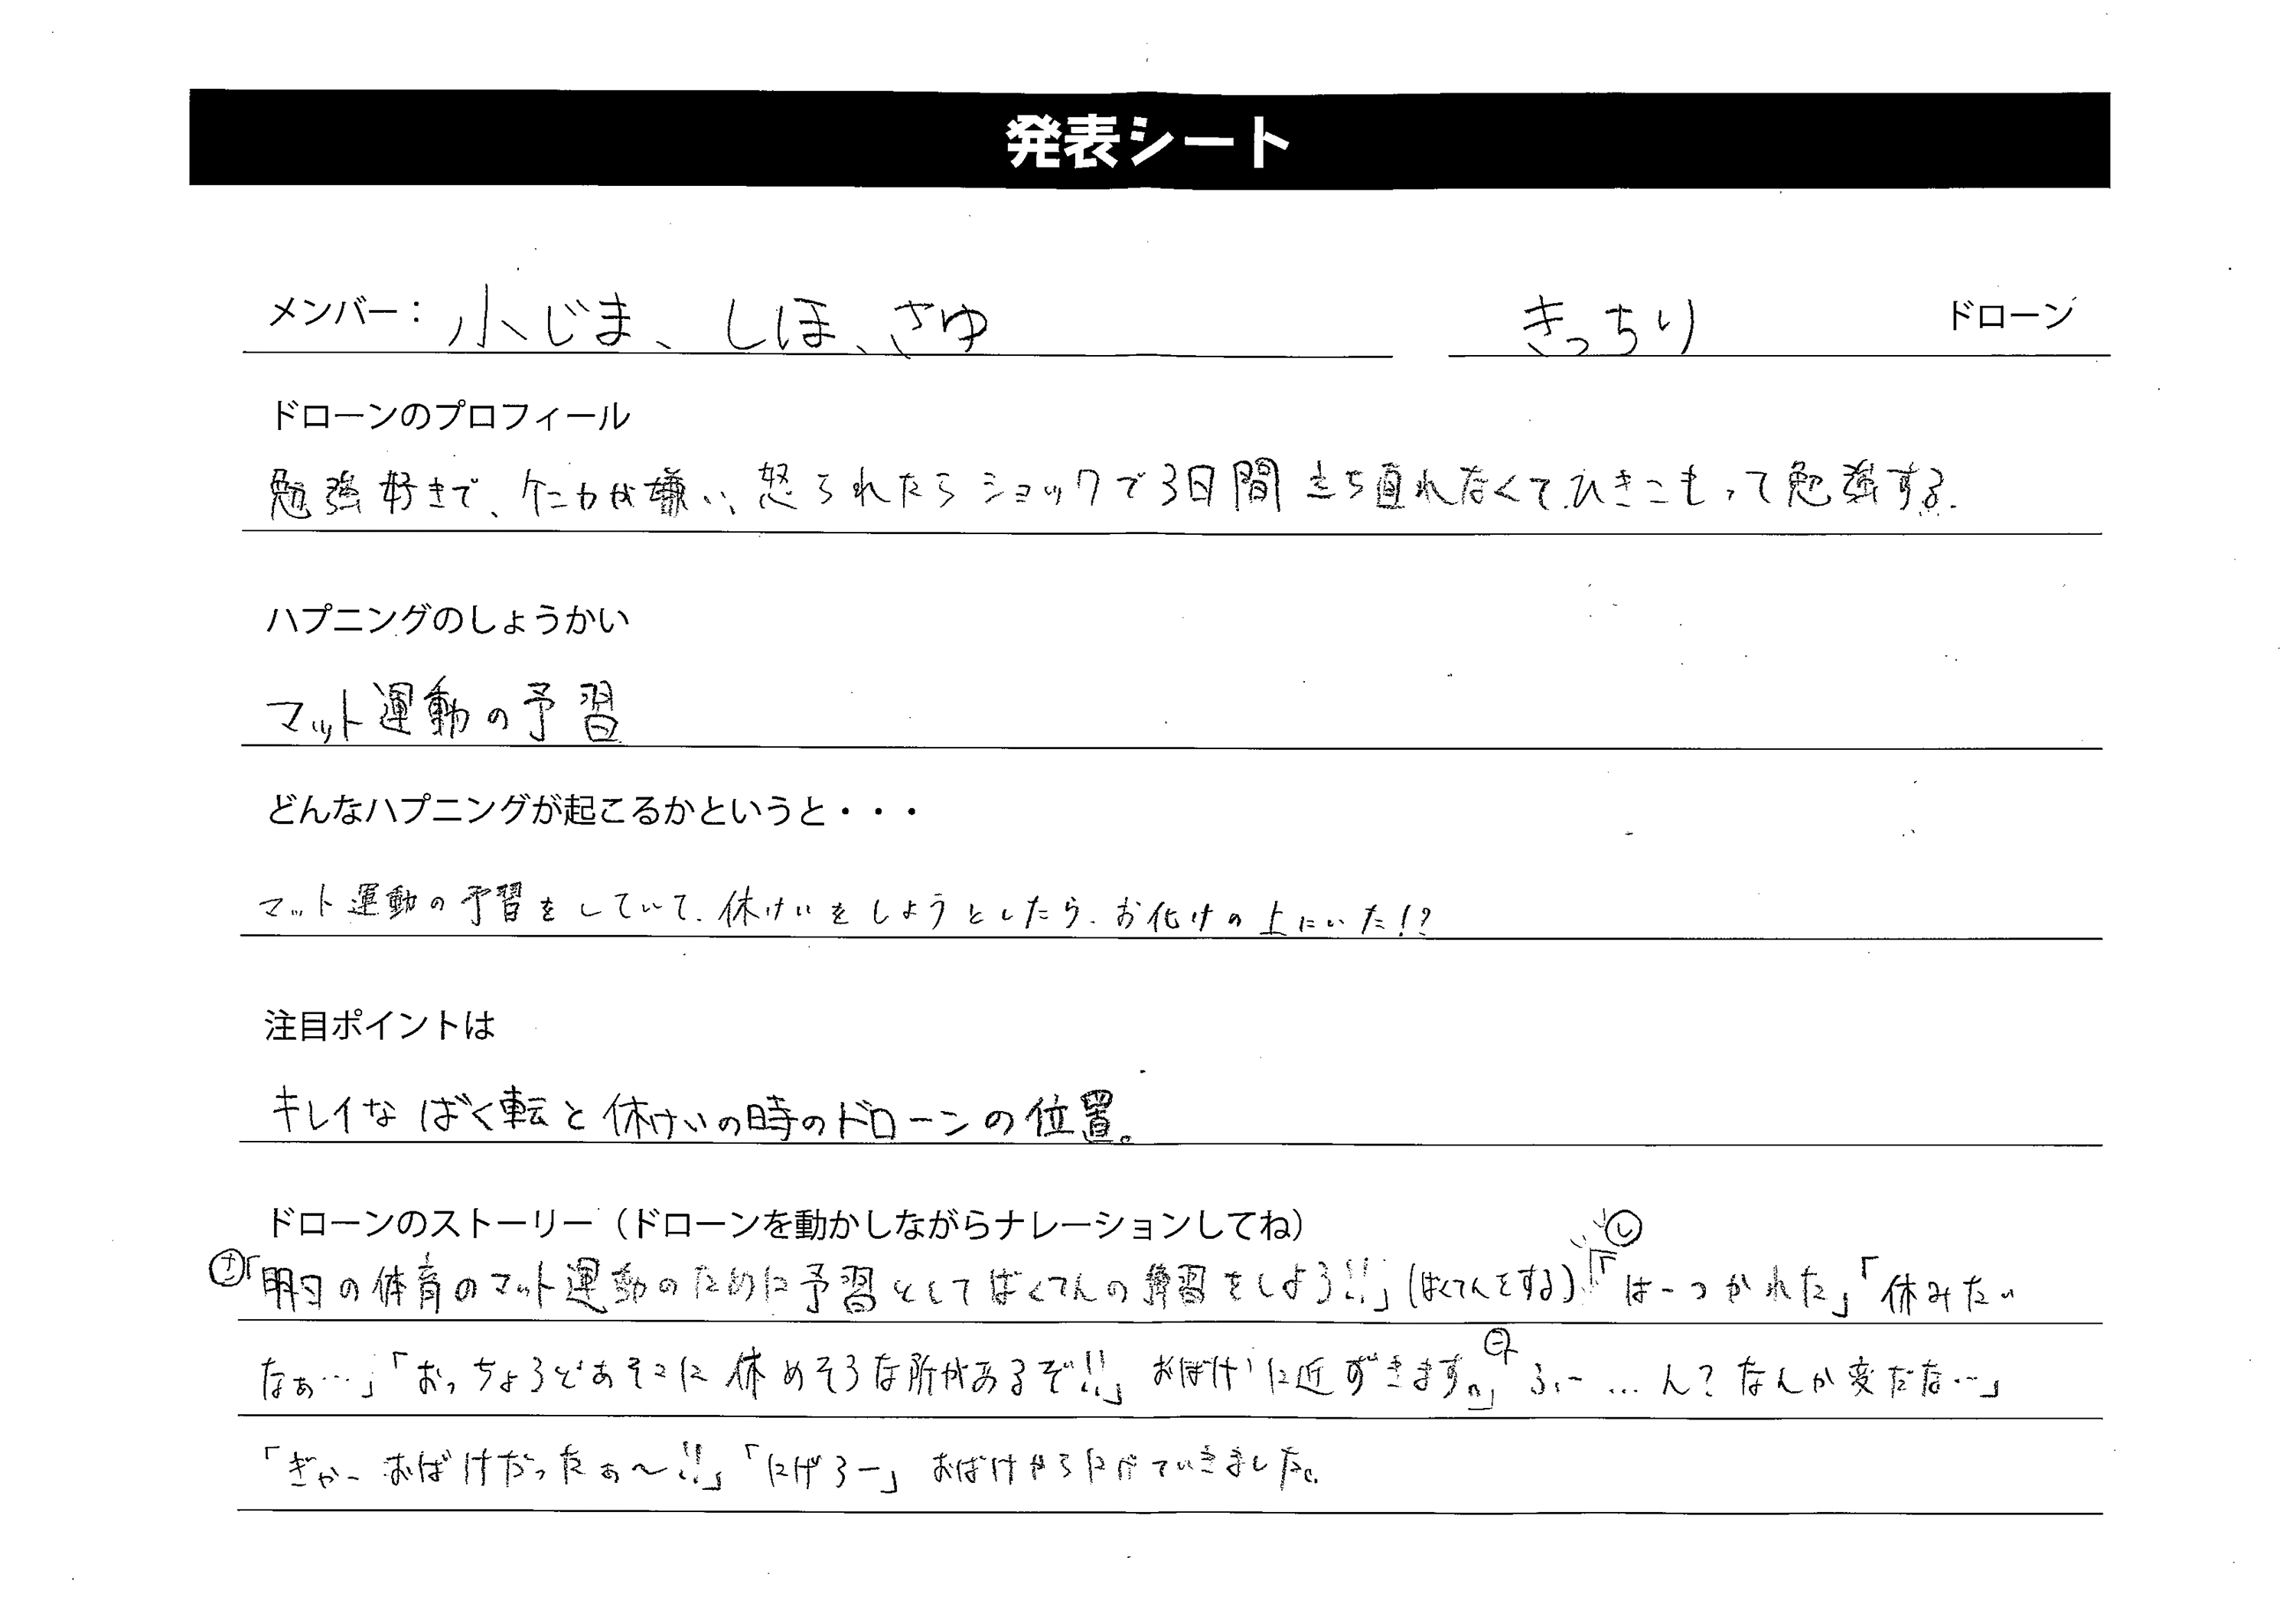 発表シート
メンバー： 小じま、しほ、さゆ きっちり ドローン
ドローンのプロフィール
勉強好きで、ケンカが嫌い、怒られたらショックで3日間立ち直れなくてひきこもって勉強する.
ハプニングのしょうかい
マット運動の予習
どんなハプニングが起こるかというと・・・
マット運動の予習をしていて、休けいをしようとしたら、お化けの上にいた!?
注目ポイントは
キレイなばく転と休けいの時のドローンの位置。
ドローンのストーリー（ドローンを動かしながらナレーションしてね）
「明日の体育のマット運動のために予習としてばくてんの練習をしよう!!」(ばくてんをする)「はーつかれた」「休みたい
なぁ…」「おっちょうどあそこに休めそうな所があるぞ!!」おばけに近ずきます。」ふー…ん?なんか変だな…」
「ぎゃーおばけだったぁ〜!!」「にげろー」おばけからにげていきました。